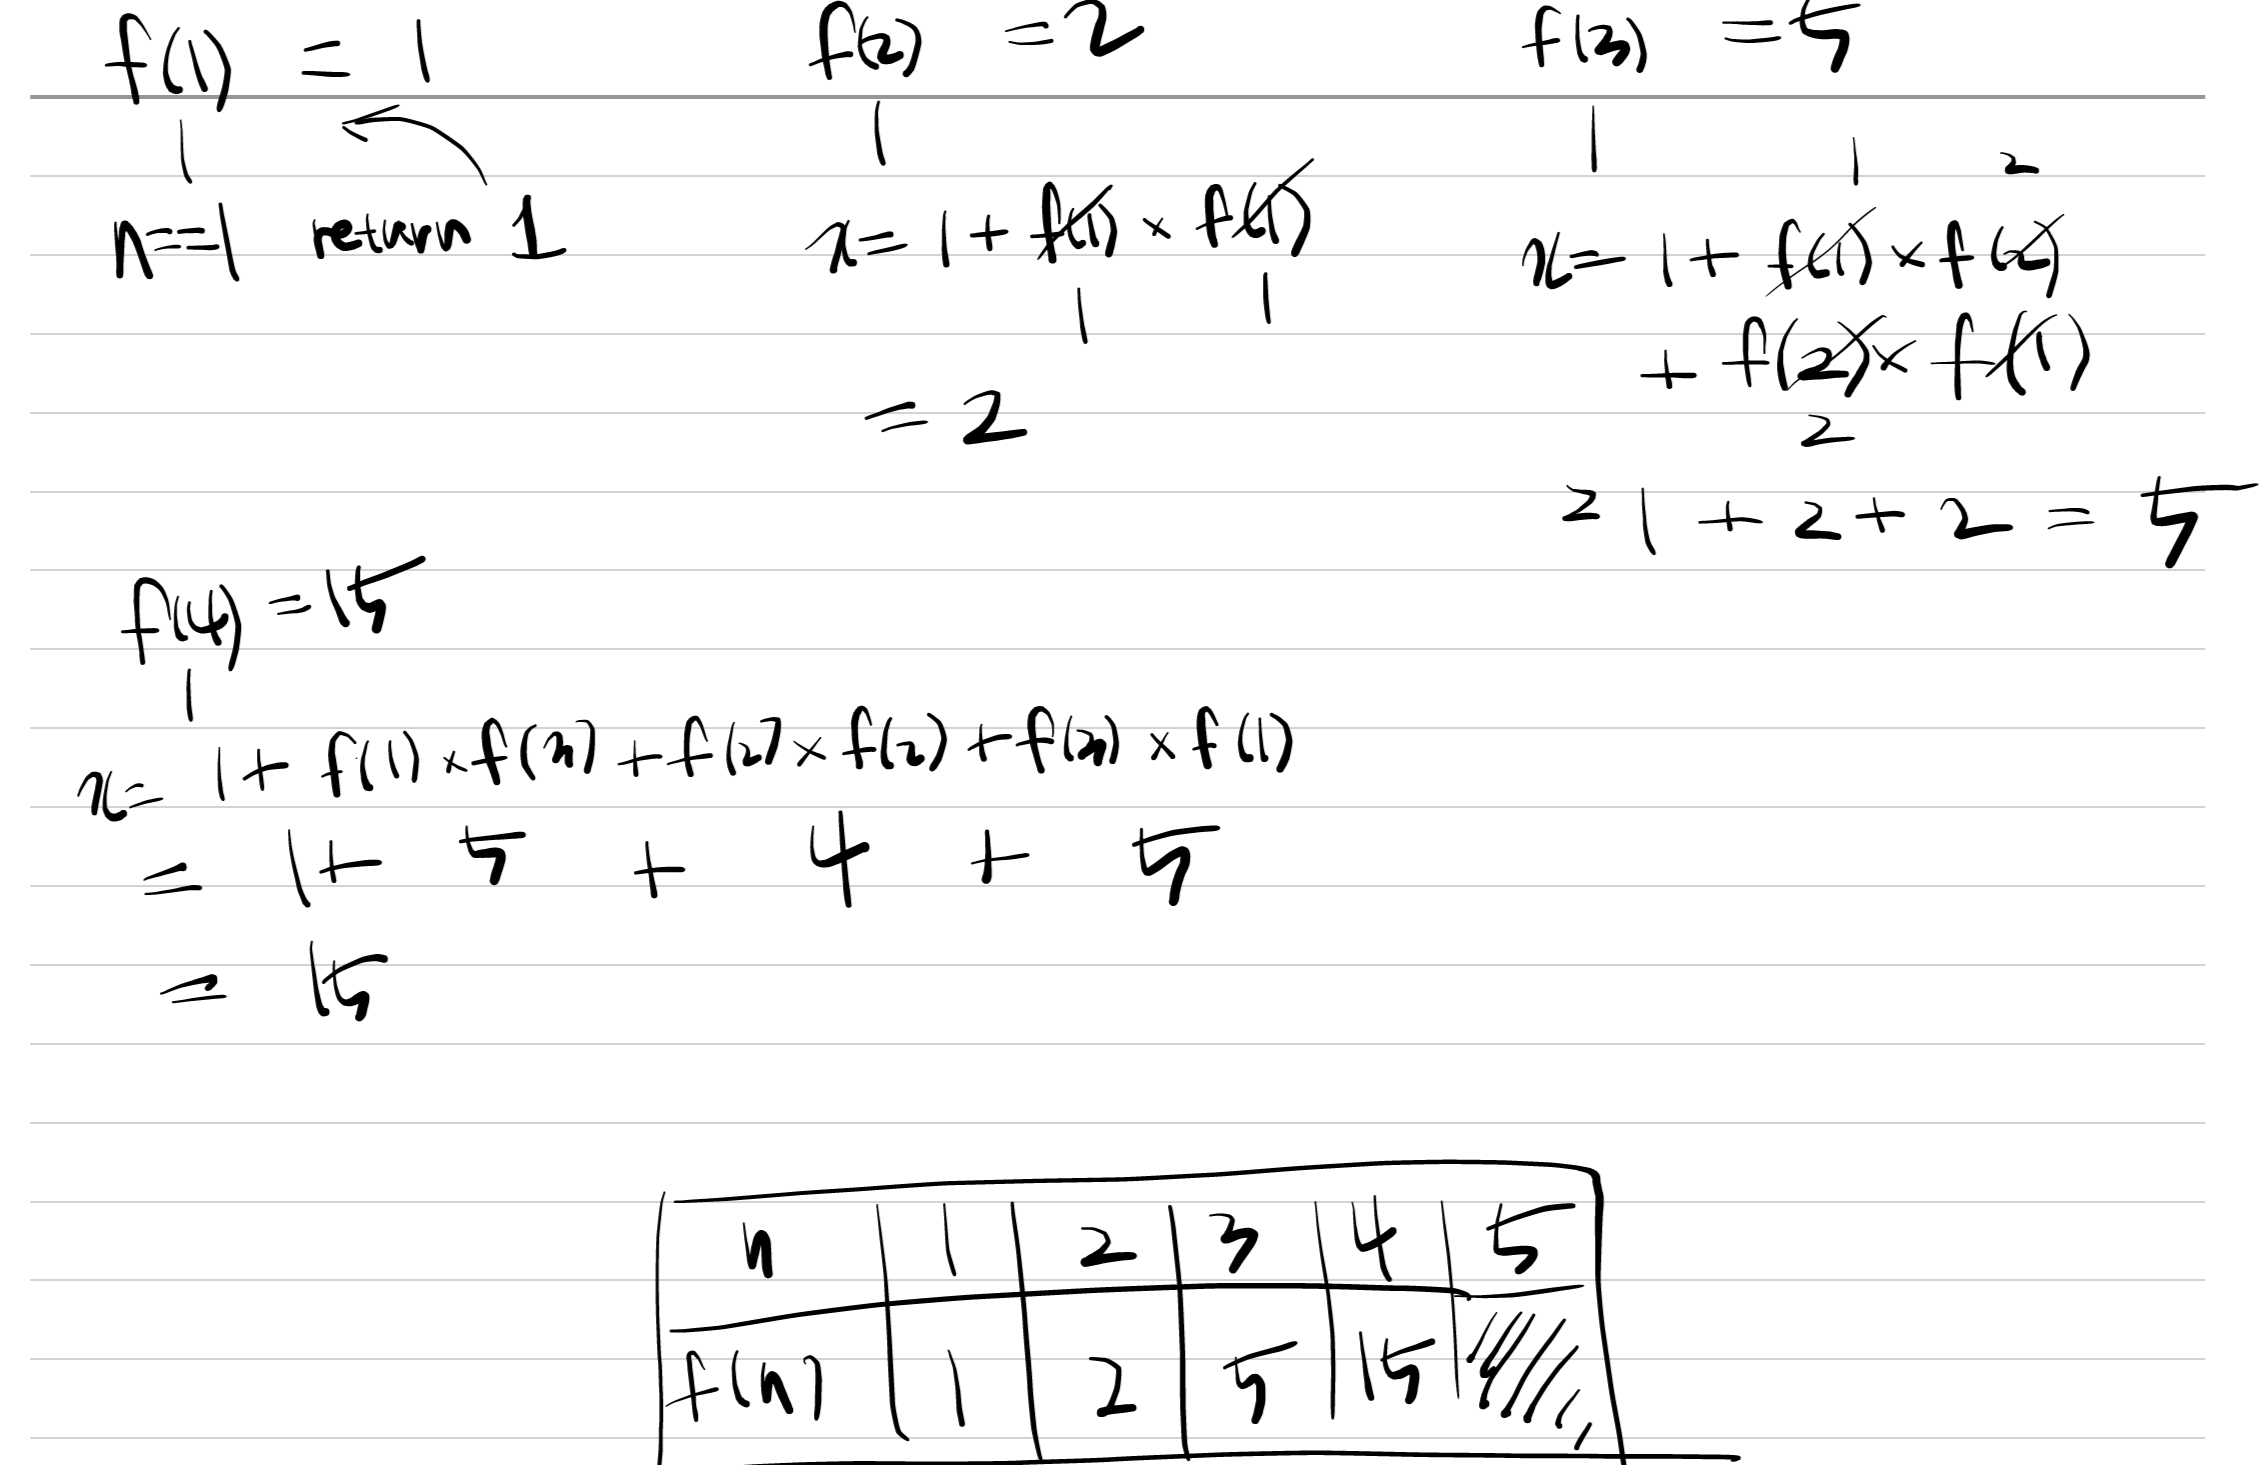 f(1) = 1
1
n==1 return 1
f(2) = 2
1
x = 1 + f(1) × f(1)
1 1
= 2
f(3) = 5
1
1 2
x = 1 + f(1) × f(2)
+ f(2) × f(1)
2
2 1 + 2 + 2 = 5
f(4) = 15
1
x = 1 + f(1) × f(3) + f(2) × f(2) + f(3) × f(1)
= 1 + 5 + 4 + 5
= 15
n 1 2 3 4 5
f(n) 1 2 5 15